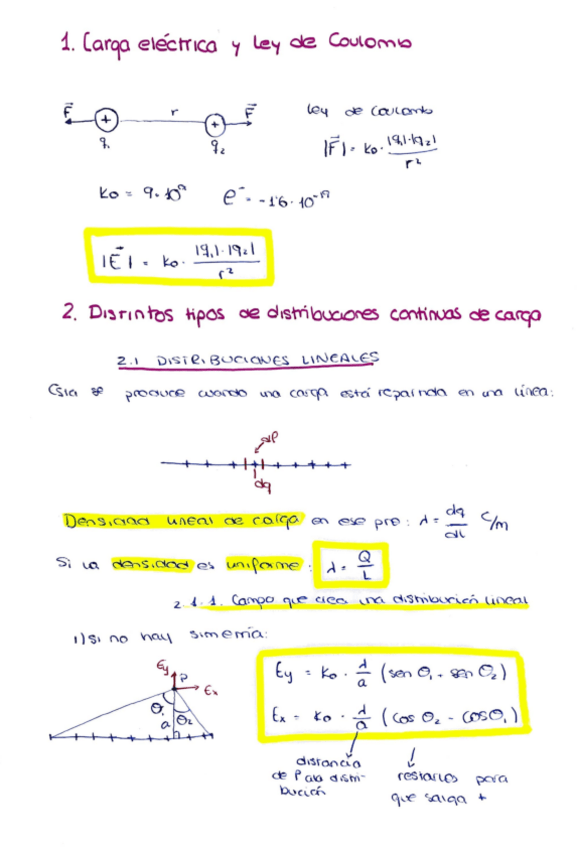 1. Carga eléctrica y Ley de Coulomb
F r F
q1 q2
Ley de Coulomb
|F| = Ko · |q1|·|q2| / r²
Ko = 9·10⁹ e⁻ = -1'6·10⁻¹⁹
|E| = Ko · |q1|·|q2| / r²
2. Distintos tipos de distribuciones continuas de carga
2.1 DISTRIBUCIONES LINEALES
Esta se produce cuando una carga está repartida en una línea:
dl
dq
Densidad lineal de carga en ese pto: λ = dq/dl C/m
Si la densidad es uniforme: λ = Q/L
2.1.1. Campo que crea una distribución lineal
1) si no hay simetría:
Ey P Ex
θ1 a θ2
Ey = Ko · λ/a (sen θ1 + sen θ2)
Ex = Ko · λ/a (cos θ2 - cos θ1)
distancia de P a la distribución
restarlos para que salga +